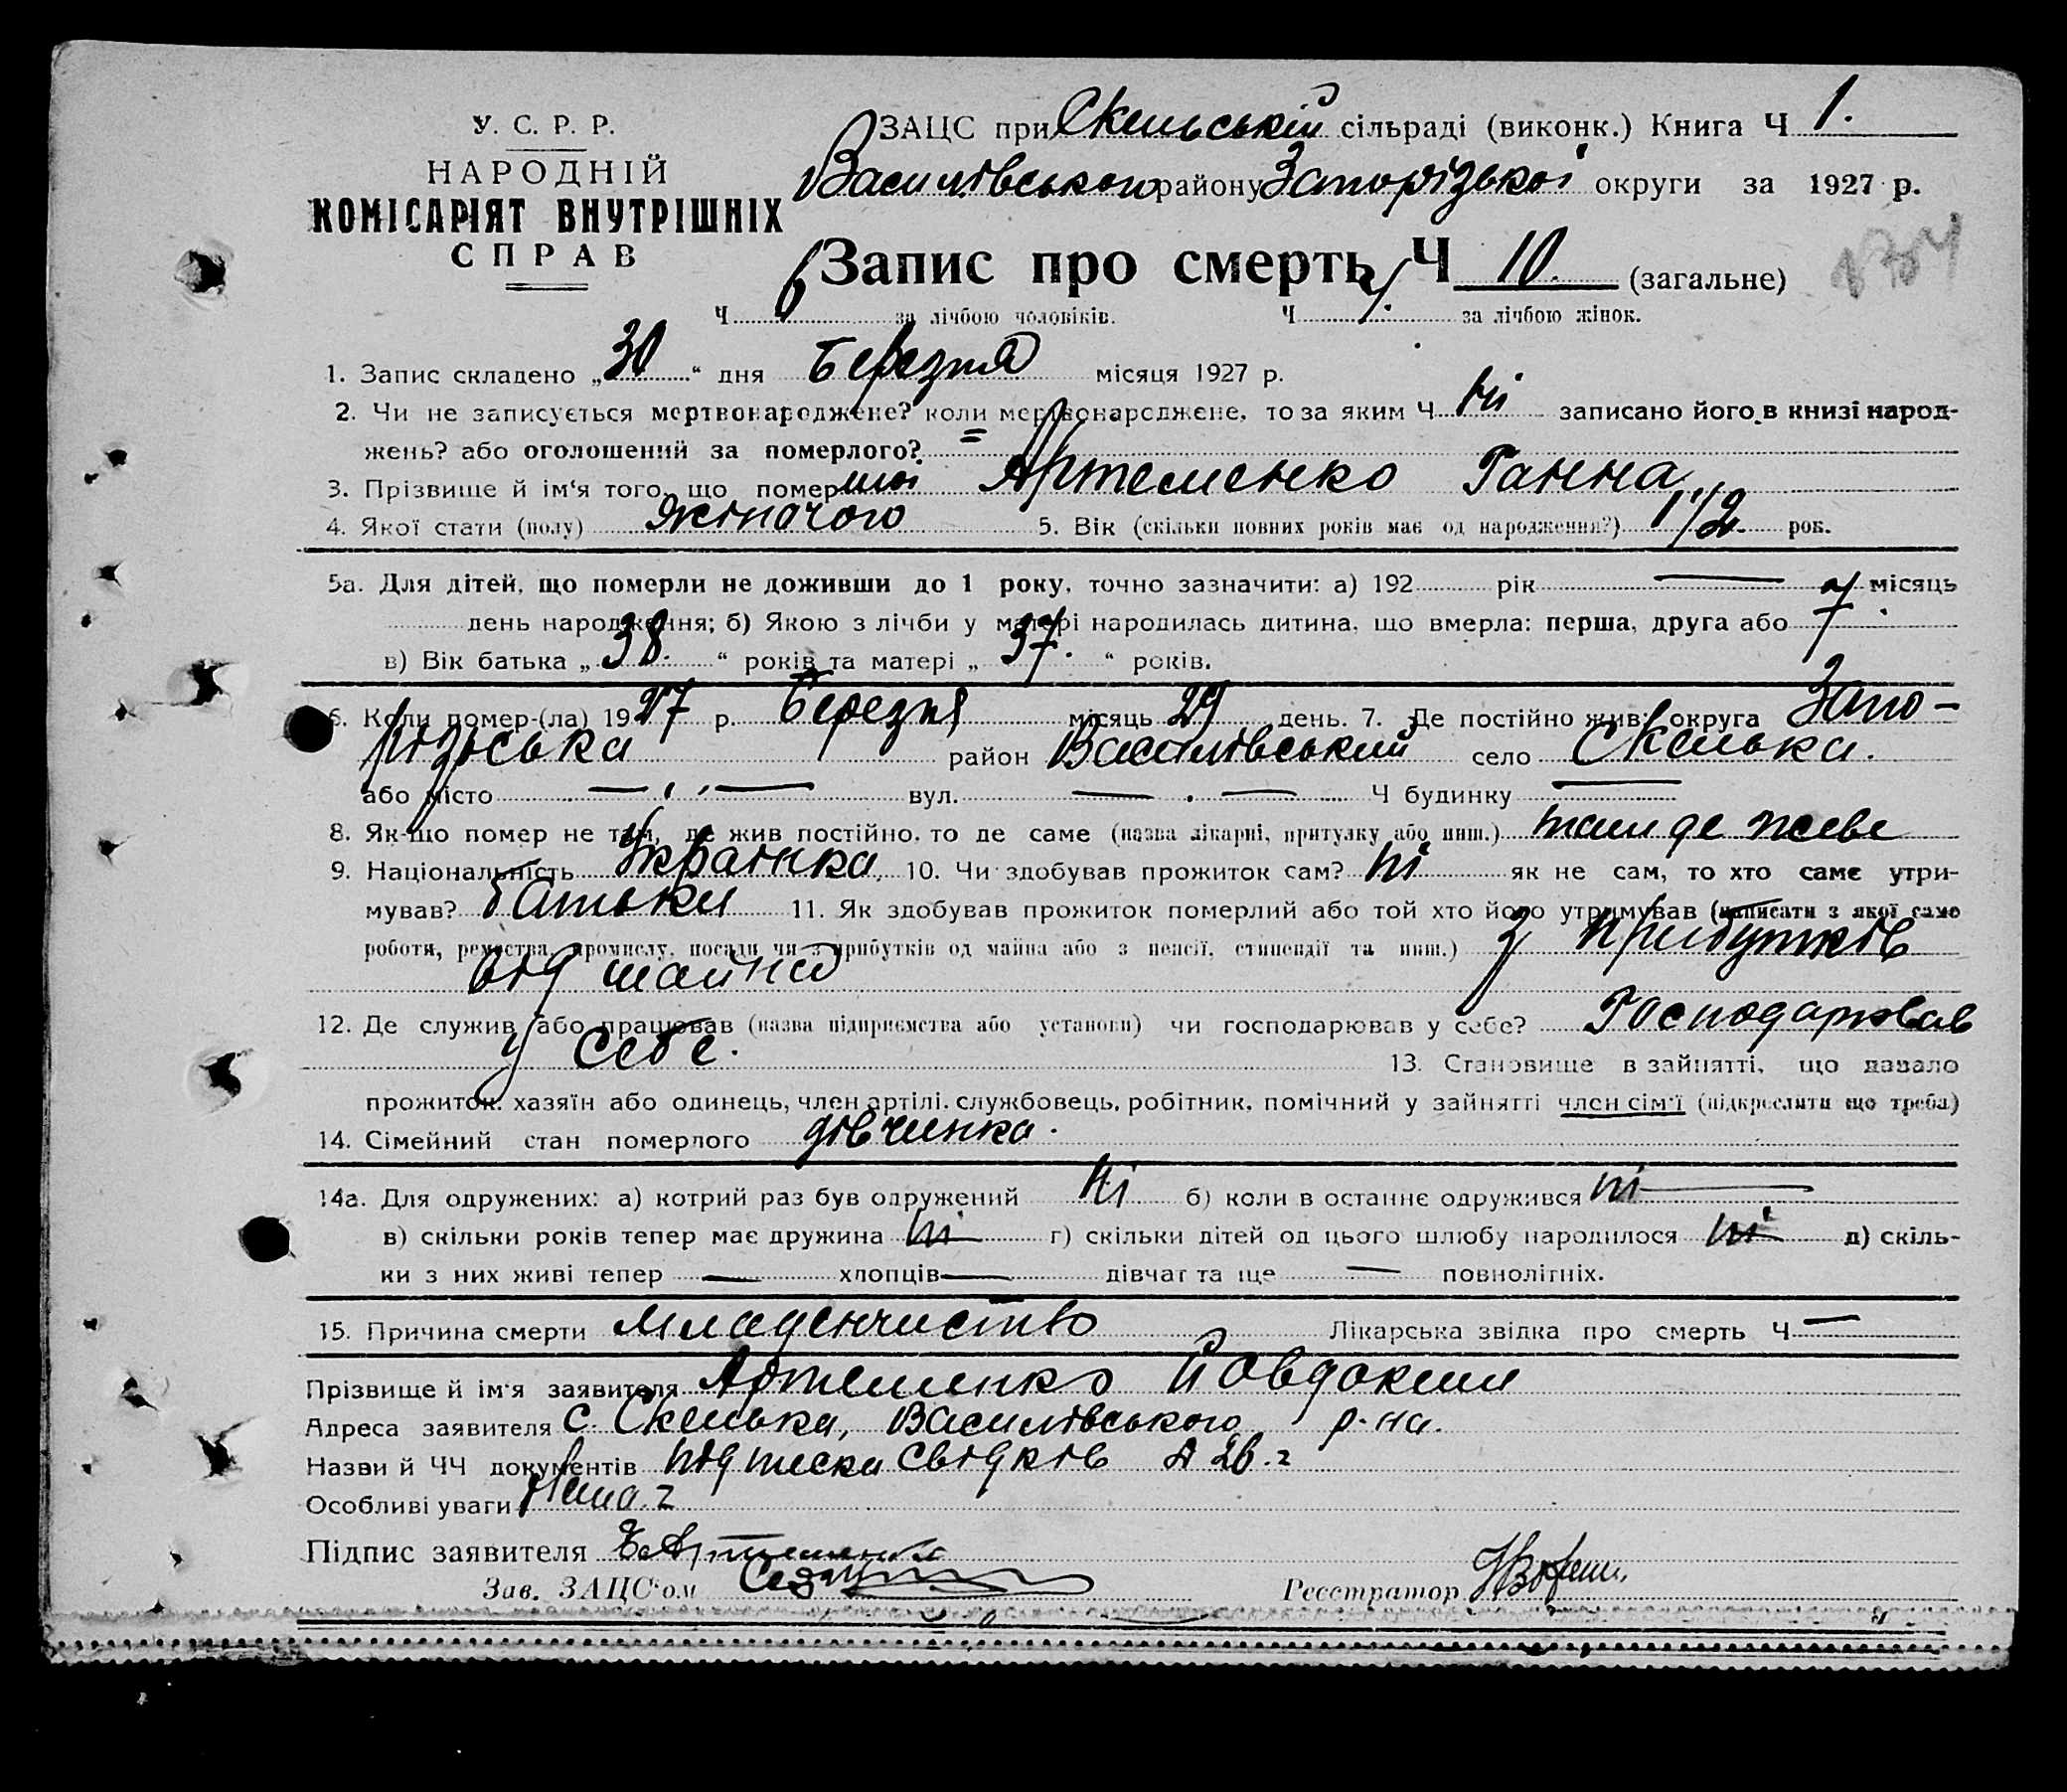 У. С. Р. Р.
НАРОДНІЙ
КОМІСАРІЯТ ВНУТРІШНІХ
СПРАВ
ЗАЦС при Скельській сільраді (виконк.) Книга Ч 1.
Василівського району Запорізької округи за 1927 р.
Запис про смерть Ч 10. (загальне)
Ч 6 за лічбою чоловіків. Ч за лічбою жінок.
1. Запис складено „30“ дня Березня місяця 1927 р.
2. Чи не записується мертвонароджене? коли мертвонароджене, то за яким Ч ні записано його в книзі народ-
жень? або оголошений за померлого? =
3. Прізвище й ім‘я того, що помершої Артеменко Ганна
4. Якої стати (полу) жіночого 5. Вік (скільки повних років має од народження?) 1 1/2 рок.
5а. Для дітей, що померли не доживши до 1 року, точно зазначити: а) 192 рік — місяць
день народження; б) Якою з лічби у матері народилась дитина, що вмерла: перша, друга або 7.
в) Вік батька „38.“ років та матері „37.“ років.
6. Коли помер-(ла) 1927 р. Березня місяць 29 день. 7. Де постійно жив: округа Запо-
різьська район Василівський село Скелька.
або місто — „ — вул. — . — Ч будинку —
8. Як-що помер не там, де жив постійно, то де саме (назва лікарні, притулку або инш.) там де живе
9. Національність Українка, 10. Чи здобував прожиток сам? ні як не сам, то хто саме утри-
мував? батьки 11. Як здобував прожиток померлий або той хто його утримував (написати з якої саме
роботи, ремества, промислу, посади чи з прибутків од майна або з пенсії, стипендії та инш.) з прибутків
від майна
12. Де служив або працював (назва підприємства або установи) чи господарював у себе? Господарював
у себе. 13. Становище в зайнятті, що давало
прожиток: хазяїн або одинець, член артілі, службовець, робітник, помічний у зайнятті член сім‘ї (підкреслити що треба)
14. Сімейний стан померлого дівчинка.
14а. Для одружених: а) котрий раз був одружений ні б) коли в останнє одружився ні —
в) скільки років тепер має дружина ні г) скільки дітей од цього шлюбу народилося ні д) скіль-
ки з них живі тепер — хлопців — дівчат та ще — повнолітніх.
15. Причина смерти младенчиство Лікарська звідка про смерть Ч —
Прізвище й ім‘я заявителя Артеменко Йовдоким
Адреса заявителя с. Скелька, Василівського р-на.
Назви й ЧЧ документів підписки свідків
Особливі уваги Нема
Підпис заявителя Е Артеменко
Зав. ЗАЦС‘ом
Реєстратор